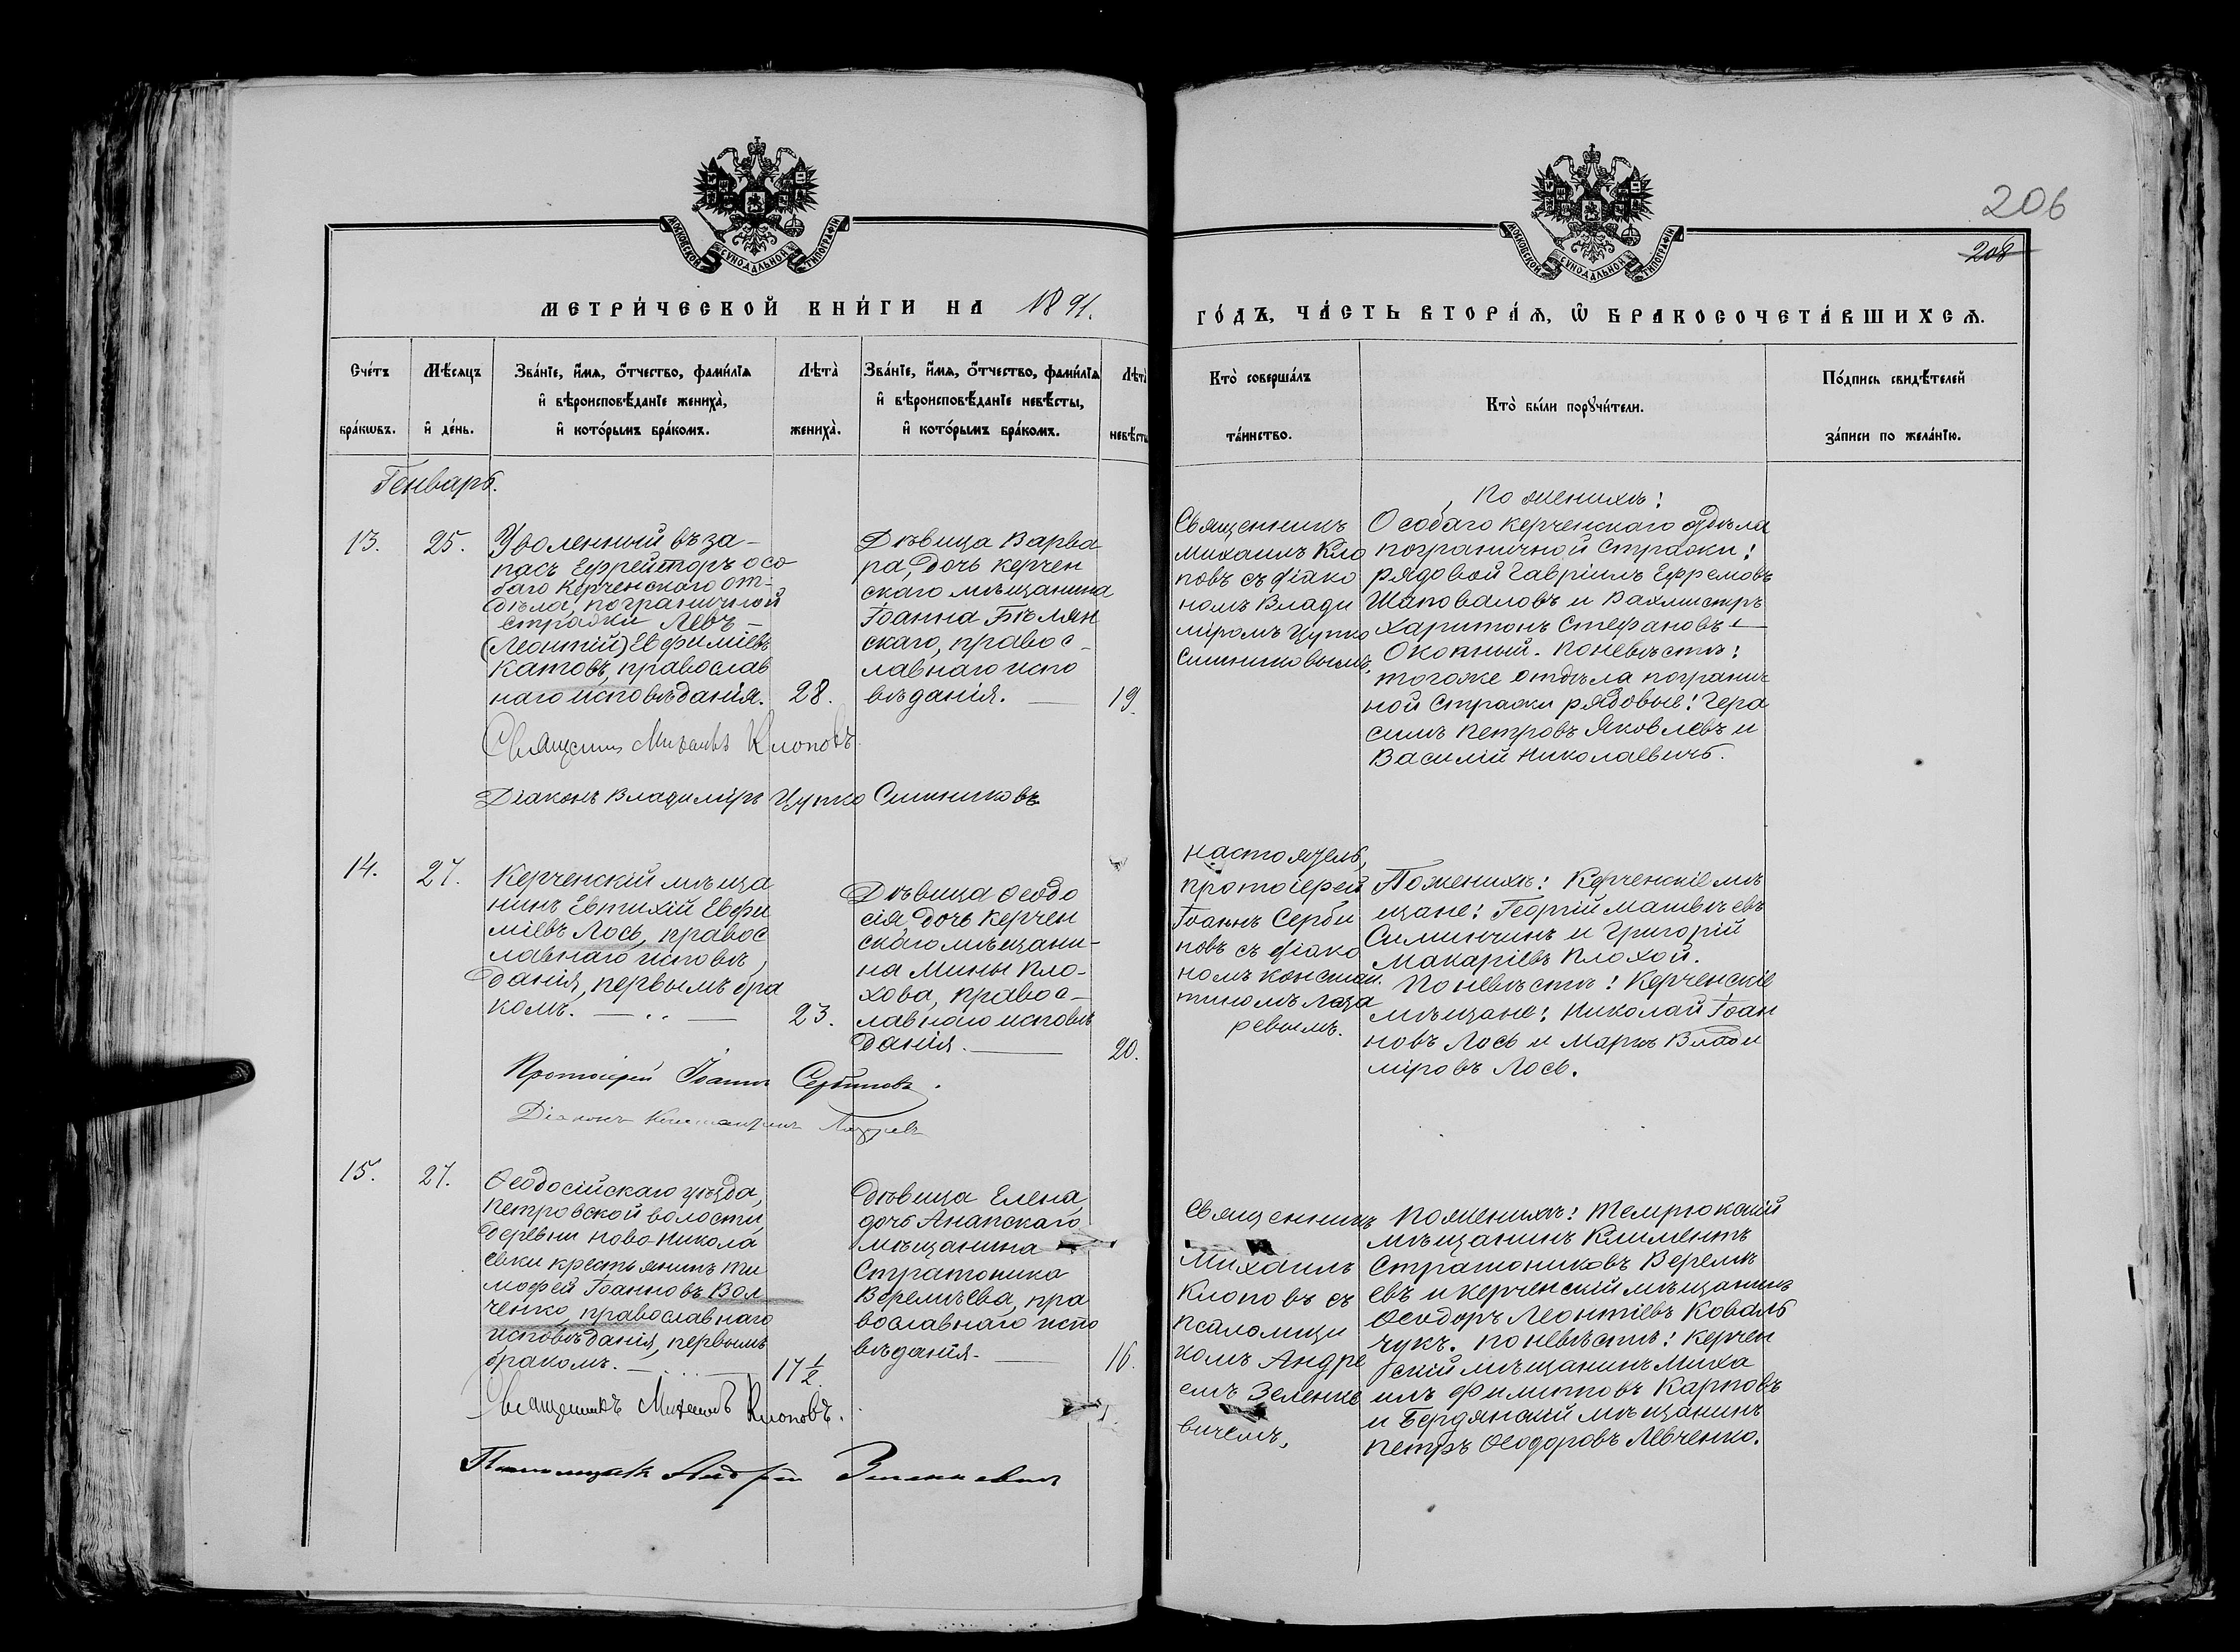 206
208
МОСКОВСКОЙ СѴНОДАЛЬНОЙ ТИПОГРАФІИ
МОСКОВСКОЙ СѴНОДАЛЬНОЙ ТИПОГРАФІИ
МЕТРИ́ЧЕСКОЙ КНИ́ГИ НА 1891.
ГО́ДЪ, ЧА́СТЬ ВТОРА́Ѧ, Ѡ҆ БРАКОСОЧЕТА́ВШИХСѦ.
Сче́тъ
бра́кѡвъ.
Мѣ́сяцъ
и҆ де́нь.
Зва́нїе, и҆́мѧ, ѻ҆́тчество, фами́лїѧ
и҆ вѣроисповѣ́данїе жениха̀,
и҆ кото́рымъ бра́комъ.
Лѣта̀
жениха̀.
Зва́нїе, и҆́мѧ, ѻ҆́тчество, фами́лїѧ
и҆ вѣроисповѣ́данїе невѣ́сты,
и҆ кото́рымъ бра́комъ.
Лѣта̀
невѣ́сты
Кто̀ соверша́лъ
та́инство.
Кто̀ бы́ли порꙋчи́тели.
По́дпись свидѣ́телей
за́писи по жела́нїю.
Генварь.
13.
25.
Уволенный въ за-
пасъ Ефрейторъ осо
баго Керченскаго от-
дѣла, пограничной
стражи Левъ -
(Леонтій) Евфиміевъ
Катовъ, православ
наго исповѣданія.
28.
Дѣвица Варва
ра, дочь керчен
скаго мѣщанина
Іоанна Бѣлян
скаго, правос-
лавнаго испо
вѣданія.
19.
Священникъ
Михаилъ Кло
повъ съ діако
номъ Влади
міромъ Цупко
Ситниковымъ.
По женихѣ:
Особаго керченскаго отдѣла
пограничной стражи:
рядовой Гавріилъ Ефремовъ
Шаповаловъ и Вахмистръ
Харитонъ Стефановъ
Окопный. По невѣстѣ:
тогоже отдѣла погранич
ной стражи рядовые: Гера
симъ Петровъ Яковлевъ и
Василій Николаевичъ.
Священникъ Михаилъ Клоповъ.
Діаконъ Владиміръ Цупко Ситниковъ
14.
27.
Керченскій мѣща
нинъ Евтихій Евфи
міевъ Лось, правос
лавнаго исповѣ
данія, первымъ бра
комъ.
23.
Дѣвица Ѳеодо
сія, дочь керчен
скаго мѣщани-
на Мины Пло-
хова, правос-
лавнаго исповѣ
данія.
20.
Настоятель,
протоіерей
Іоаннъ Серби
новъ съ діако
номъ Констан
тиномъ Лаза
ревымъ.
По женихѣ: Керченскіе мѣ
щане: Георгій Матвѣевъ
Симинчинъ и Григорій
Макаріевъ Плохой.
По невѣстѣ: Керченскіе
мѣщане: Николай Іоан
новъ Лось и Маркъ Влади
міровъ Лось.
Протоіерей Іоаннъ Сербиновъ.
Діаконъ Константинъ Лазаревъ
15.
27.
Ѳеодосійскаго уѣзда,
Петровской волости,
деревни Ново-Никола
евки крестьянинъ Ти
мофей Іоанновъ Вол
ченко, православнаго
исповѣданія, первымъ
бракомъ.
17 1/2.
Дѣвица Елена,
дочь Анапскаго
мѣщанина
Стратоника
Веремѣева, пра
вославнаго испо
вѣданія.
16.
Священникъ
Михаилъ
Клоповъ съ
псаломщи
комъ Андре
емъ Зеленке
вичемъ,
По женихѣ: Темрюкскій
мѣщанинъ Климентъ
Стратониковъ Веремѣ
евъ и керченскій мѣщанинъ
Ѳеодоръ Леонтіевъ Коваль
чукъ. По невѣстѣ: Керчен
скій мѣщанинъ Миха
илъ Филипповъ Карповъ
и Бердянскій мѣщанинъ
Петръ Ѳеодоровъ Левченко.
Священникъ Михаилъ Клоповъ.
Псаломщикъ Андрей Зеленкевичъ